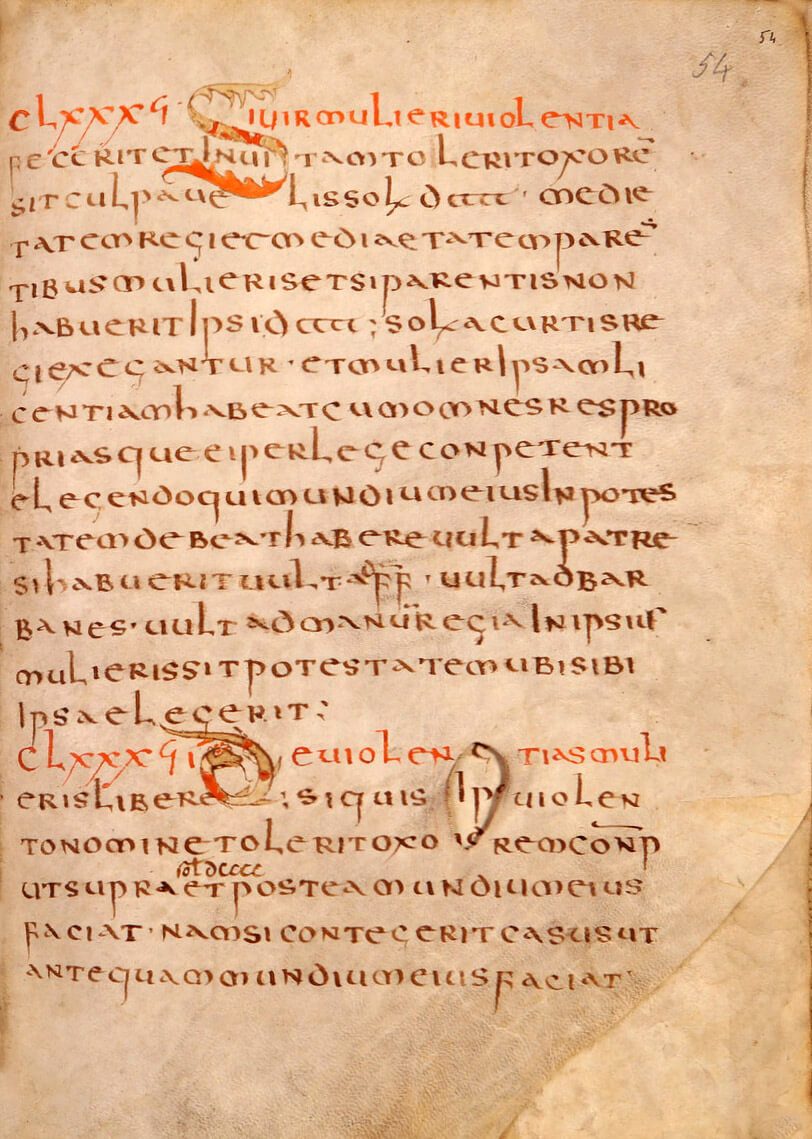 54
54
CLXXXϚ SIUIRMULIERIUIOLENTIA
FECERITETINUITAMTOLERITOXORĒ
SITCULPAUELISSOLDCCCC · MEDIE
TATEMREGIETMEDIAETATEMPAREN
TIBUSMULIERISETSIPARENTISNON
HABUERITIPSIDCCCC; SOLACURTISRE
GIEXEGANTUR · ETMULIERIPSAMLI
CENTIAMHABEATCUMOMNESRESPRO
PRIASQUEEIPERLEGECONPETENT
ELEGENDOQUIMUNDIUMEIUSINPOTES
TATEMDEBEATHABEREUULTAPATRE
SIHABUERITUULTAFF · UULTADBAR
BANES · UULTADMANUREGIAINIPSIUS
MULIERISSITPOTESTATEMUBISIBI
IPSAELEGERIT;
CLXXXϚI DEUIOLENTIASMULI
ERISLIBERE; SIQUIS IPUIOLEN
TONOMINETOLERITOXOREMCON̄P
SOLDCCCC
UTSUPRAETPOSTEAMUNDIUMEIUS
FACIAT · NAMSICONTEGERITCASUSUT
ANTEQUAMMUNDIUMEIUSFACIAT